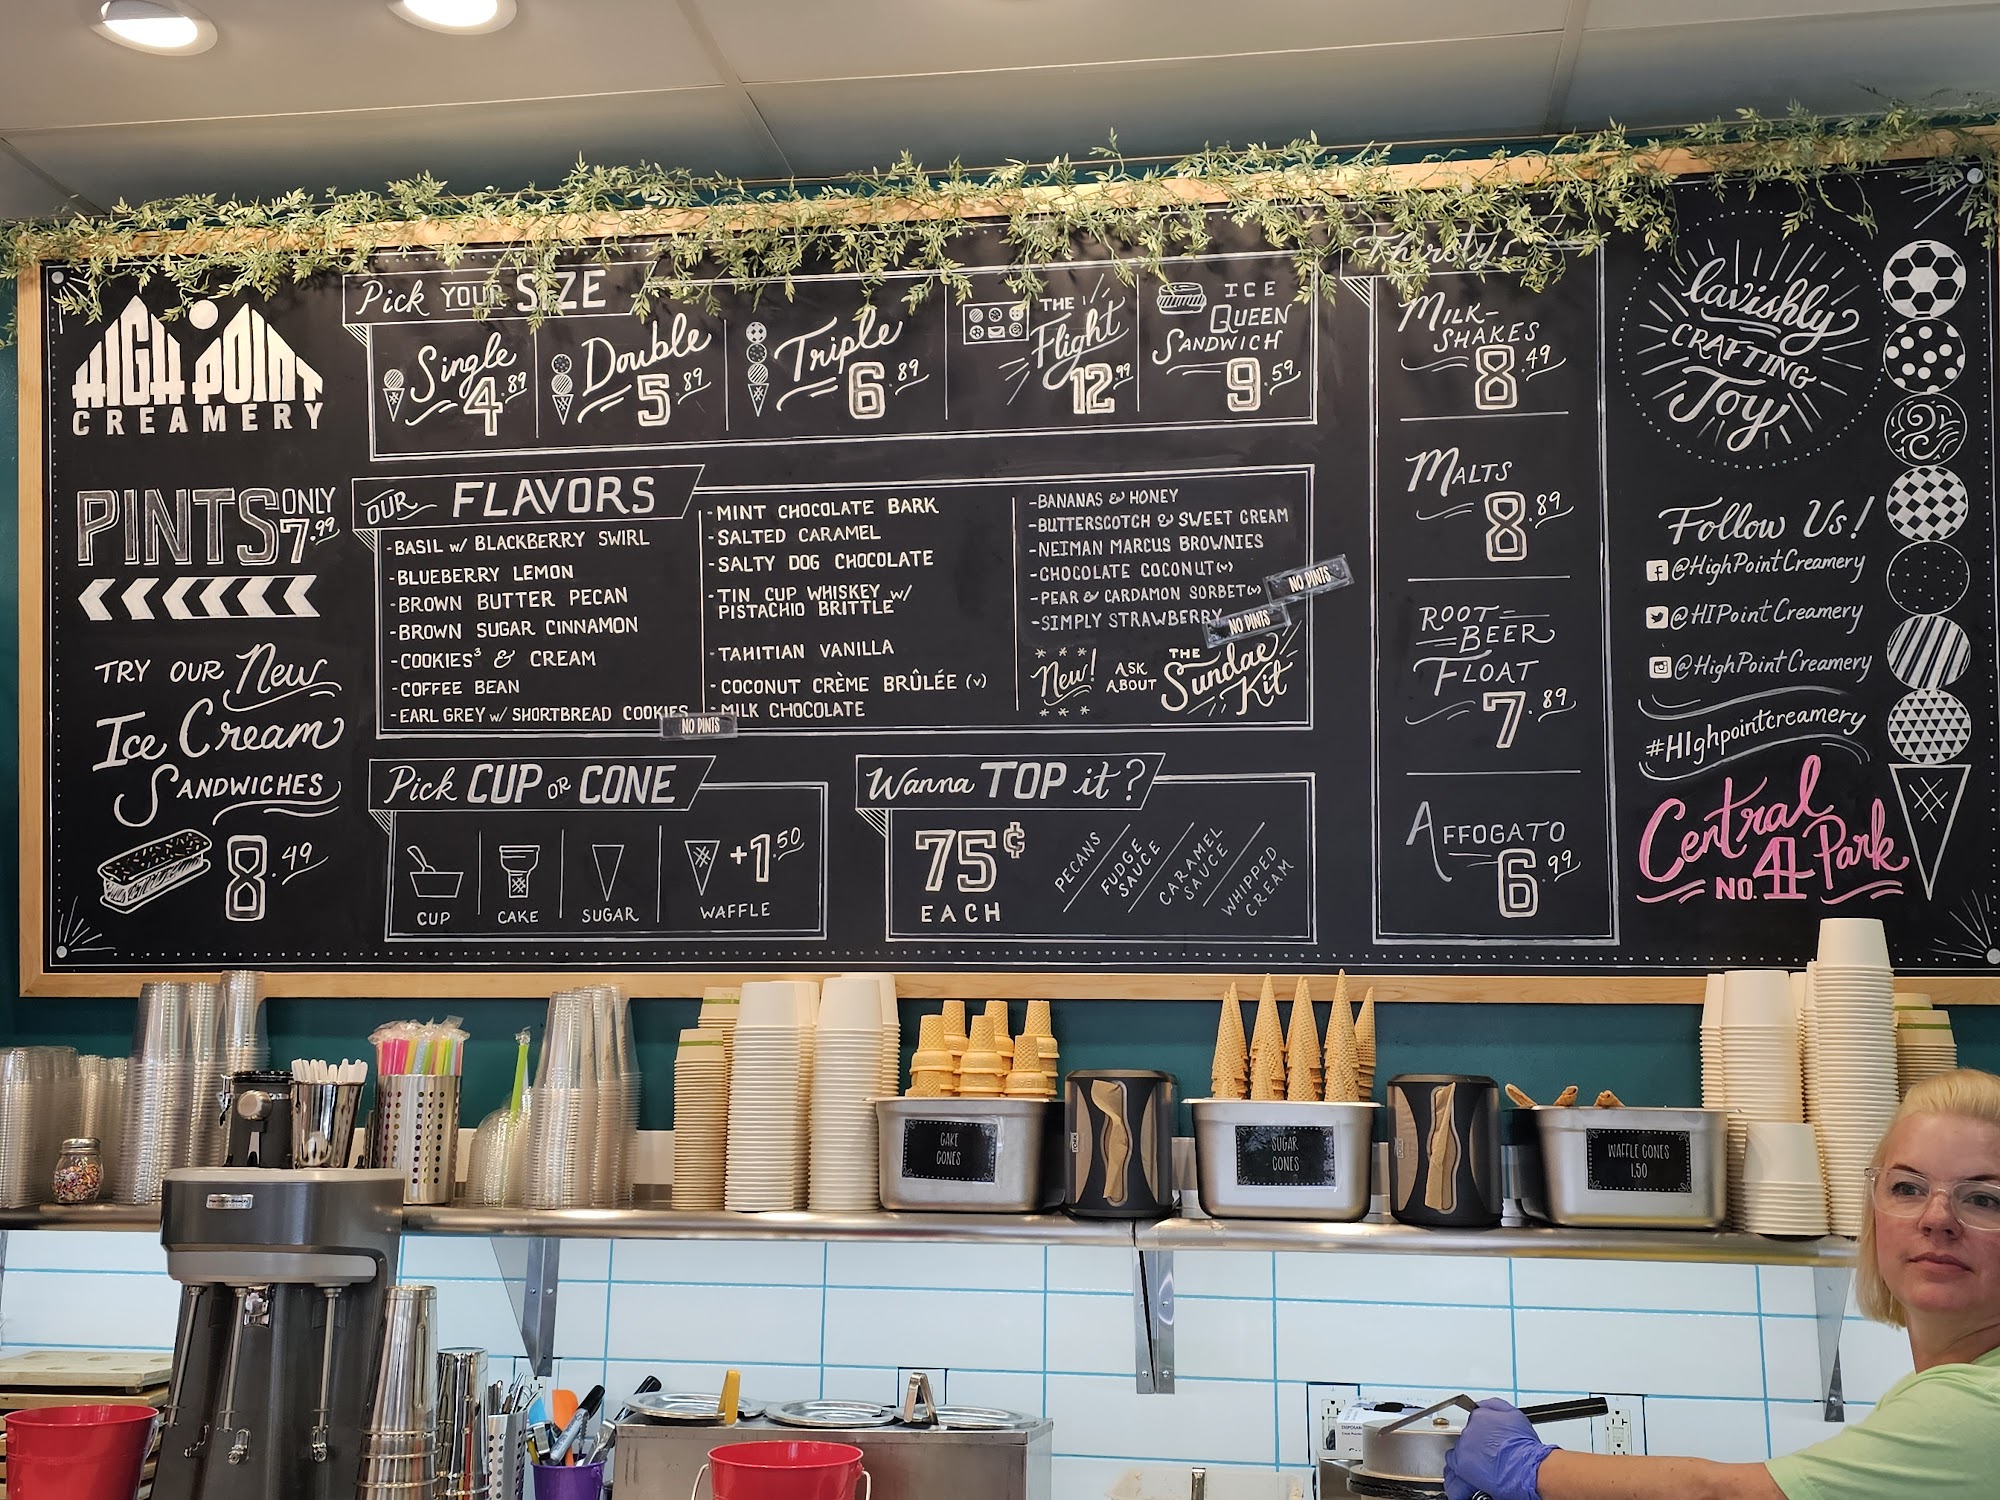 HIGH POINT
CREAMERY
PINTS ONLY
7.99
TRY OUR New
Ice Cream
SANDWICHES
8.49
Pick YOUR SIZE
Single
4.89
Double
5.89
Triple
6.89
THE
Flight
12.99
ICE
QUEEN
SANDWICH
9.59
OUR FLAVORS
-BASIL w/ BLACKBERRY SWIRL
-BLUEBERRY LEMON
-BROWN BUTTER PECAN
-BROWN SUGAR CINNAMON
-COOKIES³ & CREAM
-COFFEE BEAN
-EARL GREY w/ SHORTBREAD COOKIES
NO PINTS
-MINT CHOCOLATE BARK
-SALTED CARAMEL
-SALTY DOG CHOCOLATE
-TIN CUP WHISKEY w/
PISTACHIO BRITTLE
-TAHITIAN VANILLA
-COCONUT CRÈME BRÛLÉE (v)
-MILK CHOCOLATE
-BANANAS & HONEY
-BUTTERSCOTCH & SWEET CREAM
-NEIMAN MARCUS BROWNIES
-CHOCOLATE COCONUT(v)
-PEAR & CARDAMON SORBET(v)
NO PINTS
-SIMPLY STRAWBERRY
NO PINTS
New! ASK
ABOUT
THE
Sundae
Kit
Pick CUP OR CONE
CUP
CAKE
SUGAR
WAFFLE
+1.50
Wanna TOP it?
75¢
EACH
PECANS
FUDGE
SAUCE
CARAMEL
SAUCE
WHIPPED
CREAM
Thirsty?
MILK-
SHAKES
8.49
MALTS
8.89
ROOT
BEER
FLOAT
7.89
AFFOGATO
6.99
lavishly
CRAFTING
Joy
Follow Us!
@HighPointCreamery
@HIPointCreamery
@HighPointCreamery
#HIghpointcreamery
Central
Park
NO. 4
CAKE
CONES
SUGAR
CONES
WAFFLE CONES
1.50